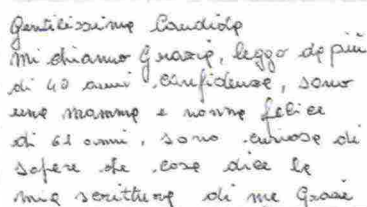 Gentilissima Candida
mi chiamo Grazia, leggo da più
di 40 anni Confidenze, sono
una mamma e nonna felice
di 61 anni, sono curiosa di
sapere che cosa dice la
mia scrittura di me Grazie